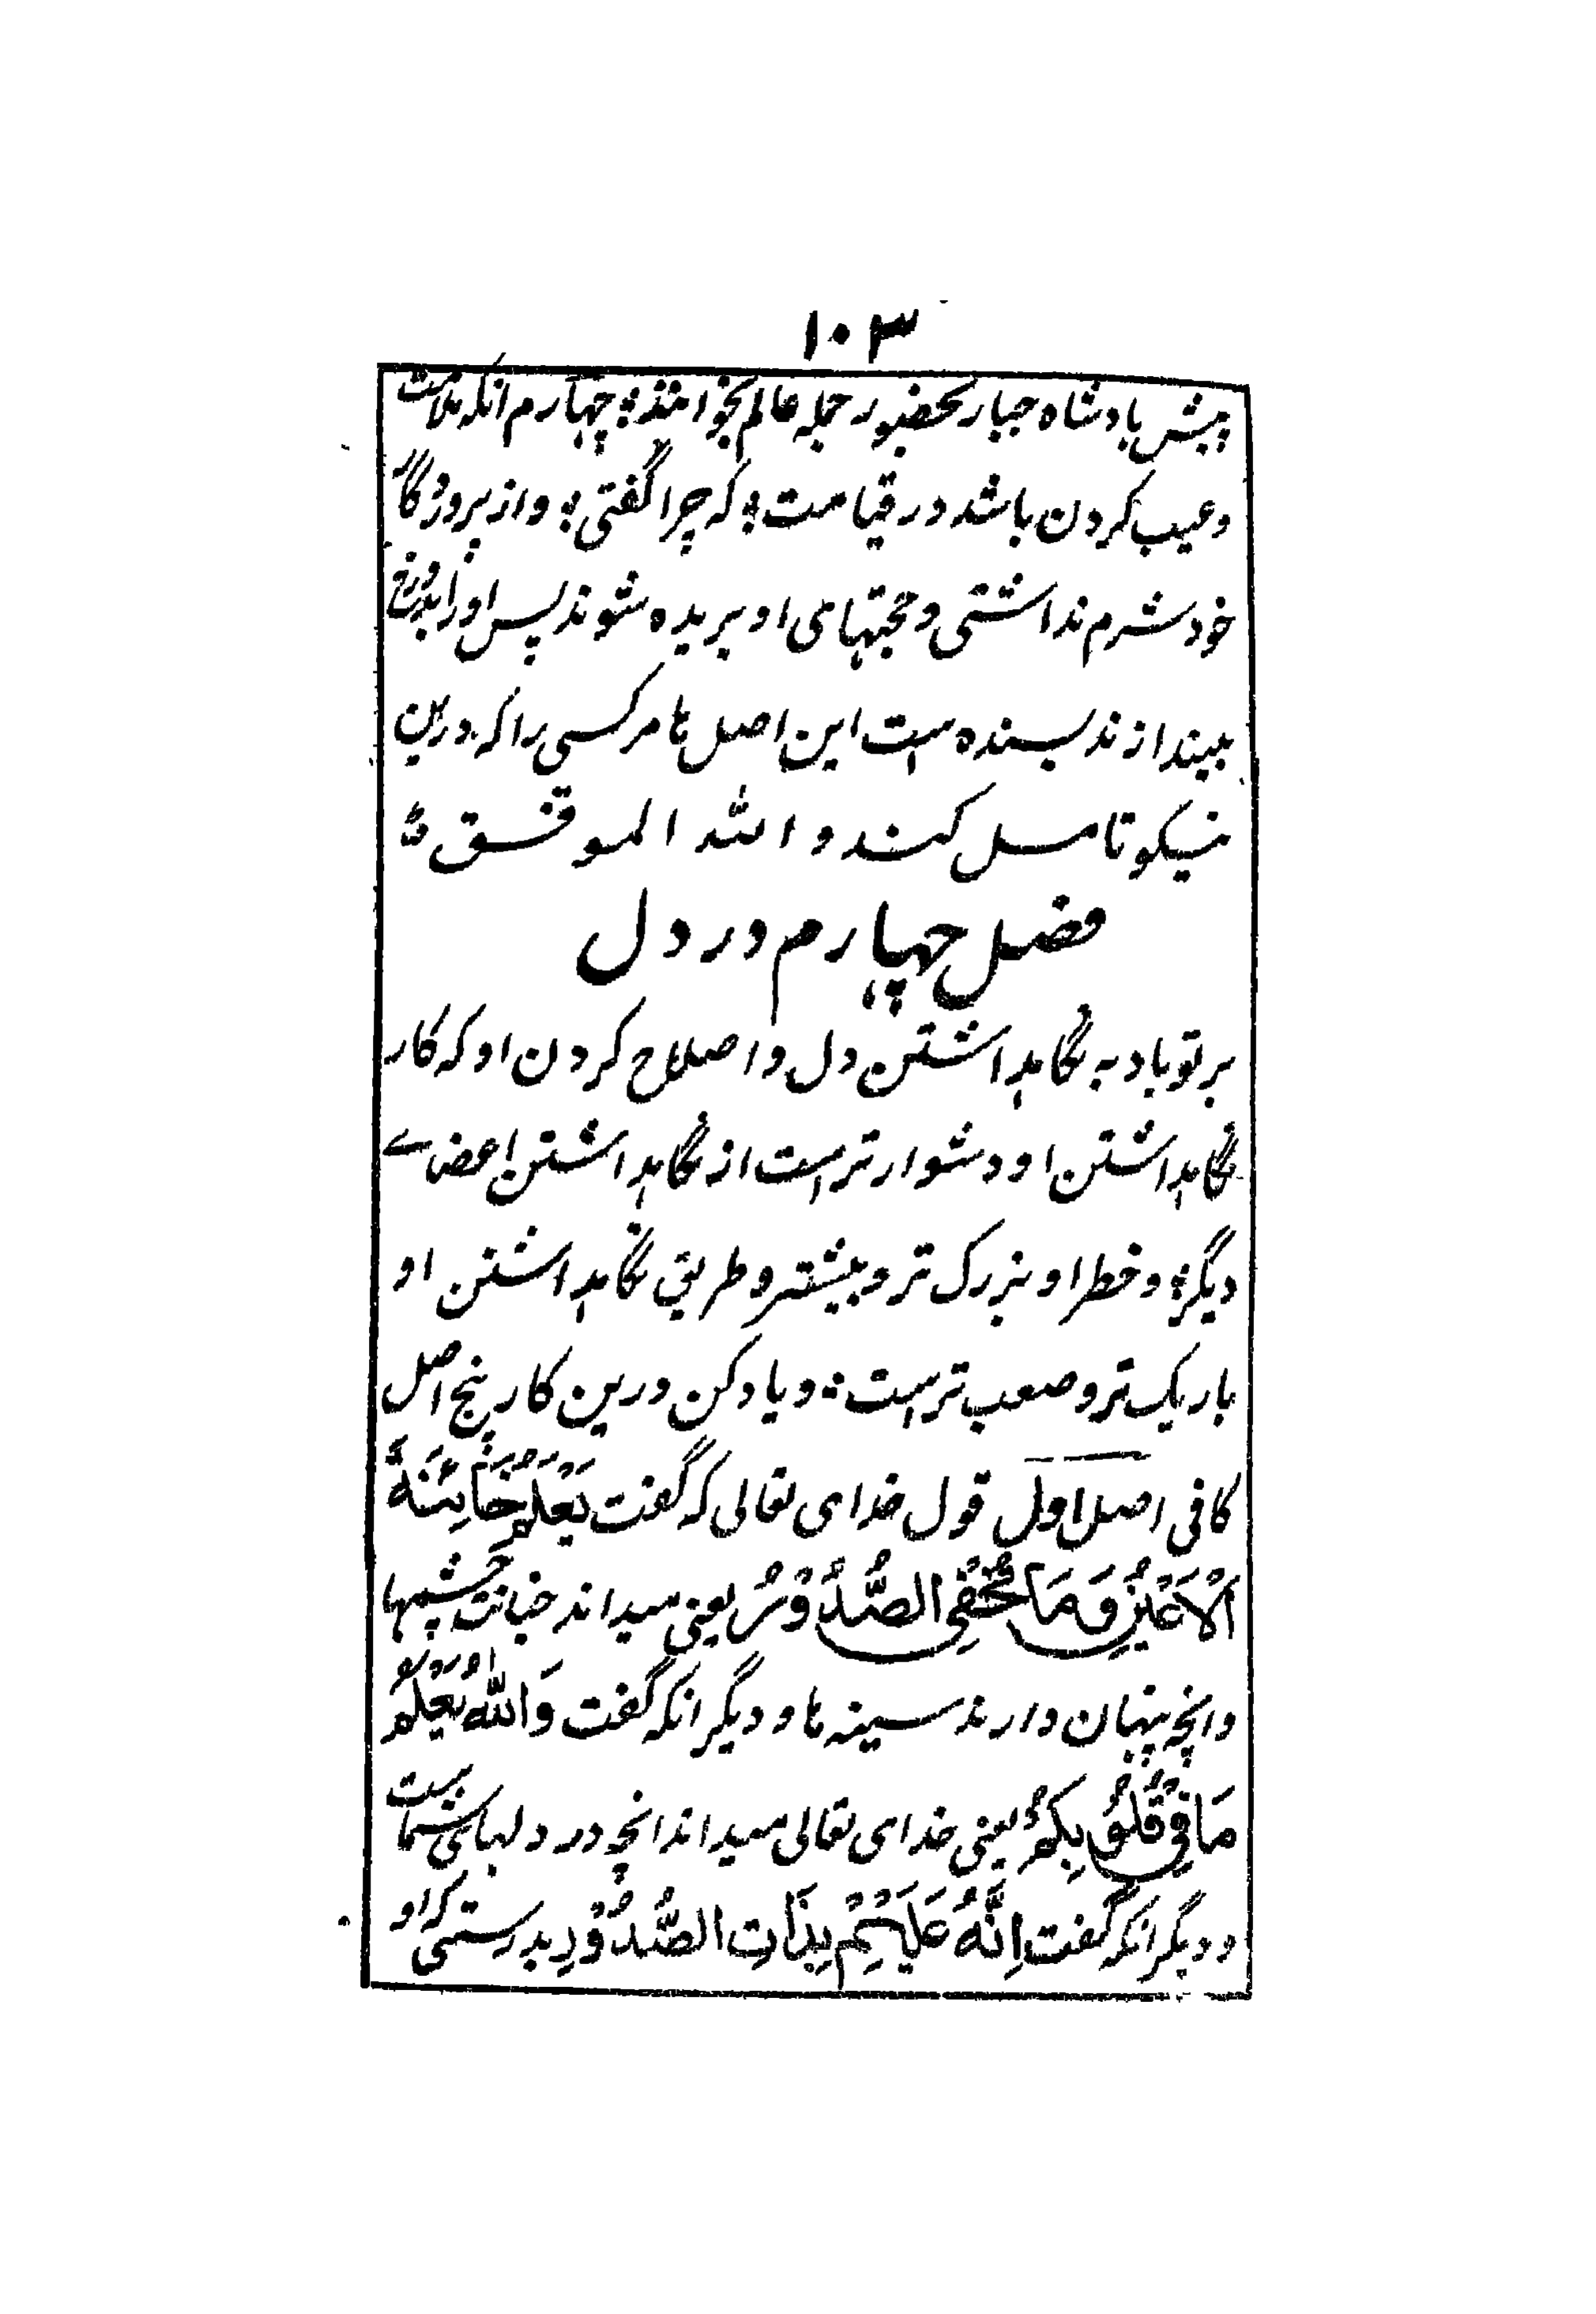 ۱۰۳
پیش بادشاه جبار بحضور جمله عالم بخوانند؛ چهارم انکه ملامت
وعیب کردن باشد در قیامت؛ که چرا گفتی؛ واز پروردگار
خود شرم نداشتی وحجتهای او بریده شوند پس اورا بدوزخ
بیندازند بسنده است این اصل ها مر کسی را که درین
نیکو تامل کند والله الموفق
فصل چهارم در دل
بر تو باد به نگاهداشتن دل واصلاح کردن او که کار
نگاهداشتن او دشوار تر است از نگاهداشتن اعضاے
دیگر؛ وخطر او بزرک تر وبیشتر وطریق نگاهداشتن او
باریک تر وصعب تر است؛ ویاد کن درین کار پنج اصل
کافی اصل اول قول خدای تعالی که گفت یَعْلَمُ خَائِنَةَ
الْاَعْیُنِ وَمَا تُخْفِی الصُّدُوْرُ یعنی میداند خیانت چشمها
وانچه پنهان دارند سینه ها ودیگر انکه گفت وَاللّٰهُ یَعْلَمُ
مَا فِیْ قُلُوْبِکُمْ یعنی خدای تعالی میداند انچه در دلهای شماست
ودیگر انکه گفت اِنَّهٗ عَلِیْمٌ بِذَاتِ الصُّدُوْرِ بدرستی که او